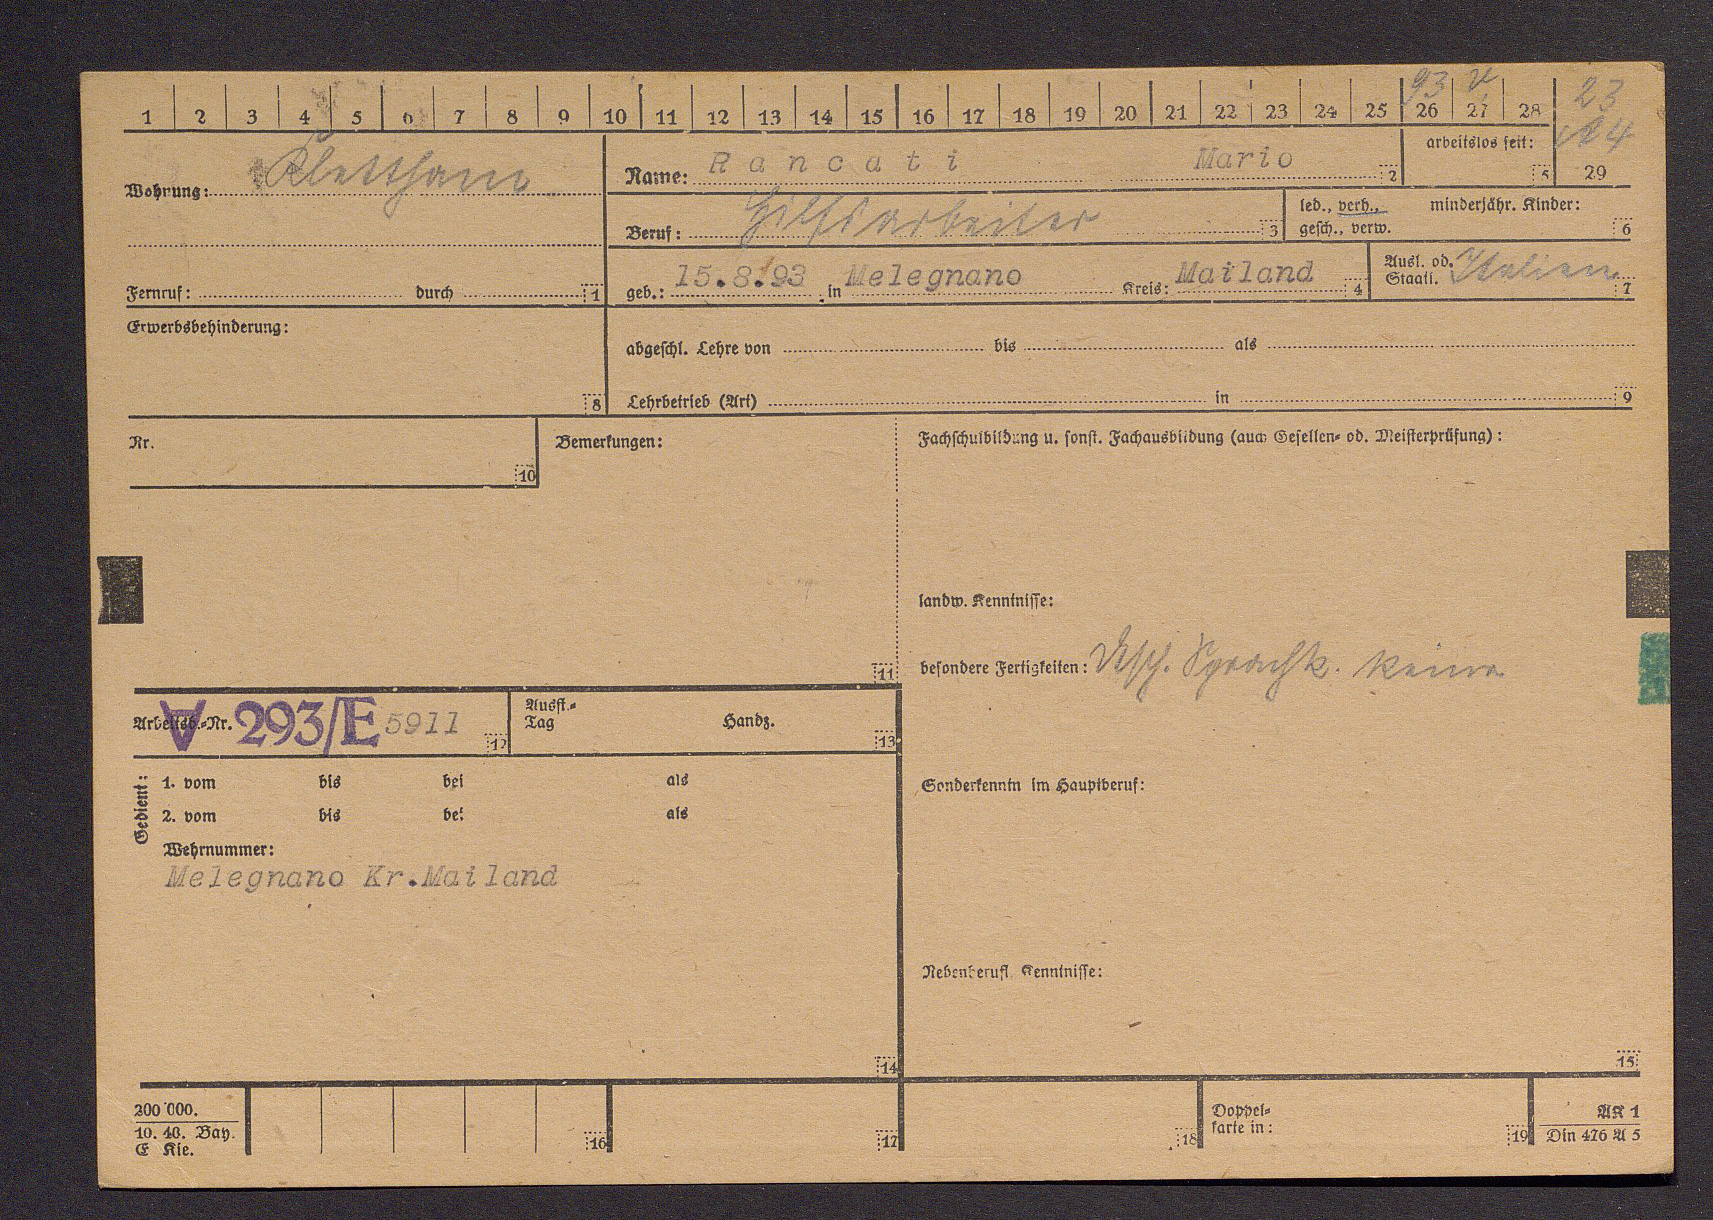 93 V. 23
1 2 3 4 5 6 7 8 9 10 11 12 13 14 15 16 17 18 19 20 21 22 23 24 25 26 27 28
Wohnung: Klettham
Name: Rancati Mario 2
arbeitslos seit: 5
29
Beruf: Hilfsarbeiter 3
led., verh., minderjähr. Kinder:
gesch., verw. 6
Fernruf: durch 1
geb.: 15.8.93 in Melegnano Kreis: Mailand 4
Ausl. od. Italien
Staatl. 7
Erwerbsbehinderung:
8
abgeschl. Lehre von bis als
Lehrbetrieb (Art) in 9
Nr.
10
Bemerkungen:
11
Fachschulbildung u. sonst. Fachausbildung (auch Gesellen- od. Meisterprüfung):
landw. Kenntnisse:
besondere Fertigkeiten: Dtsch. Sprachk. keine
Arbeitsb.-Nr. A 293/E 5911 12
Ausst.-
Tag Handz.
13
Gedient:
1. vom bis bei als
2. vom bis bei als
Wehrnummer:
Melegnano Kr.Mailand
14
Sonderkenntn im Hauptberuf:
Nebenberufl. Kenntnisse:
15
200 000.
10. 40. Bay.
E Kie.
16
17
18
Doppel-
karte in:
19
AK 1
Din 476 A 5